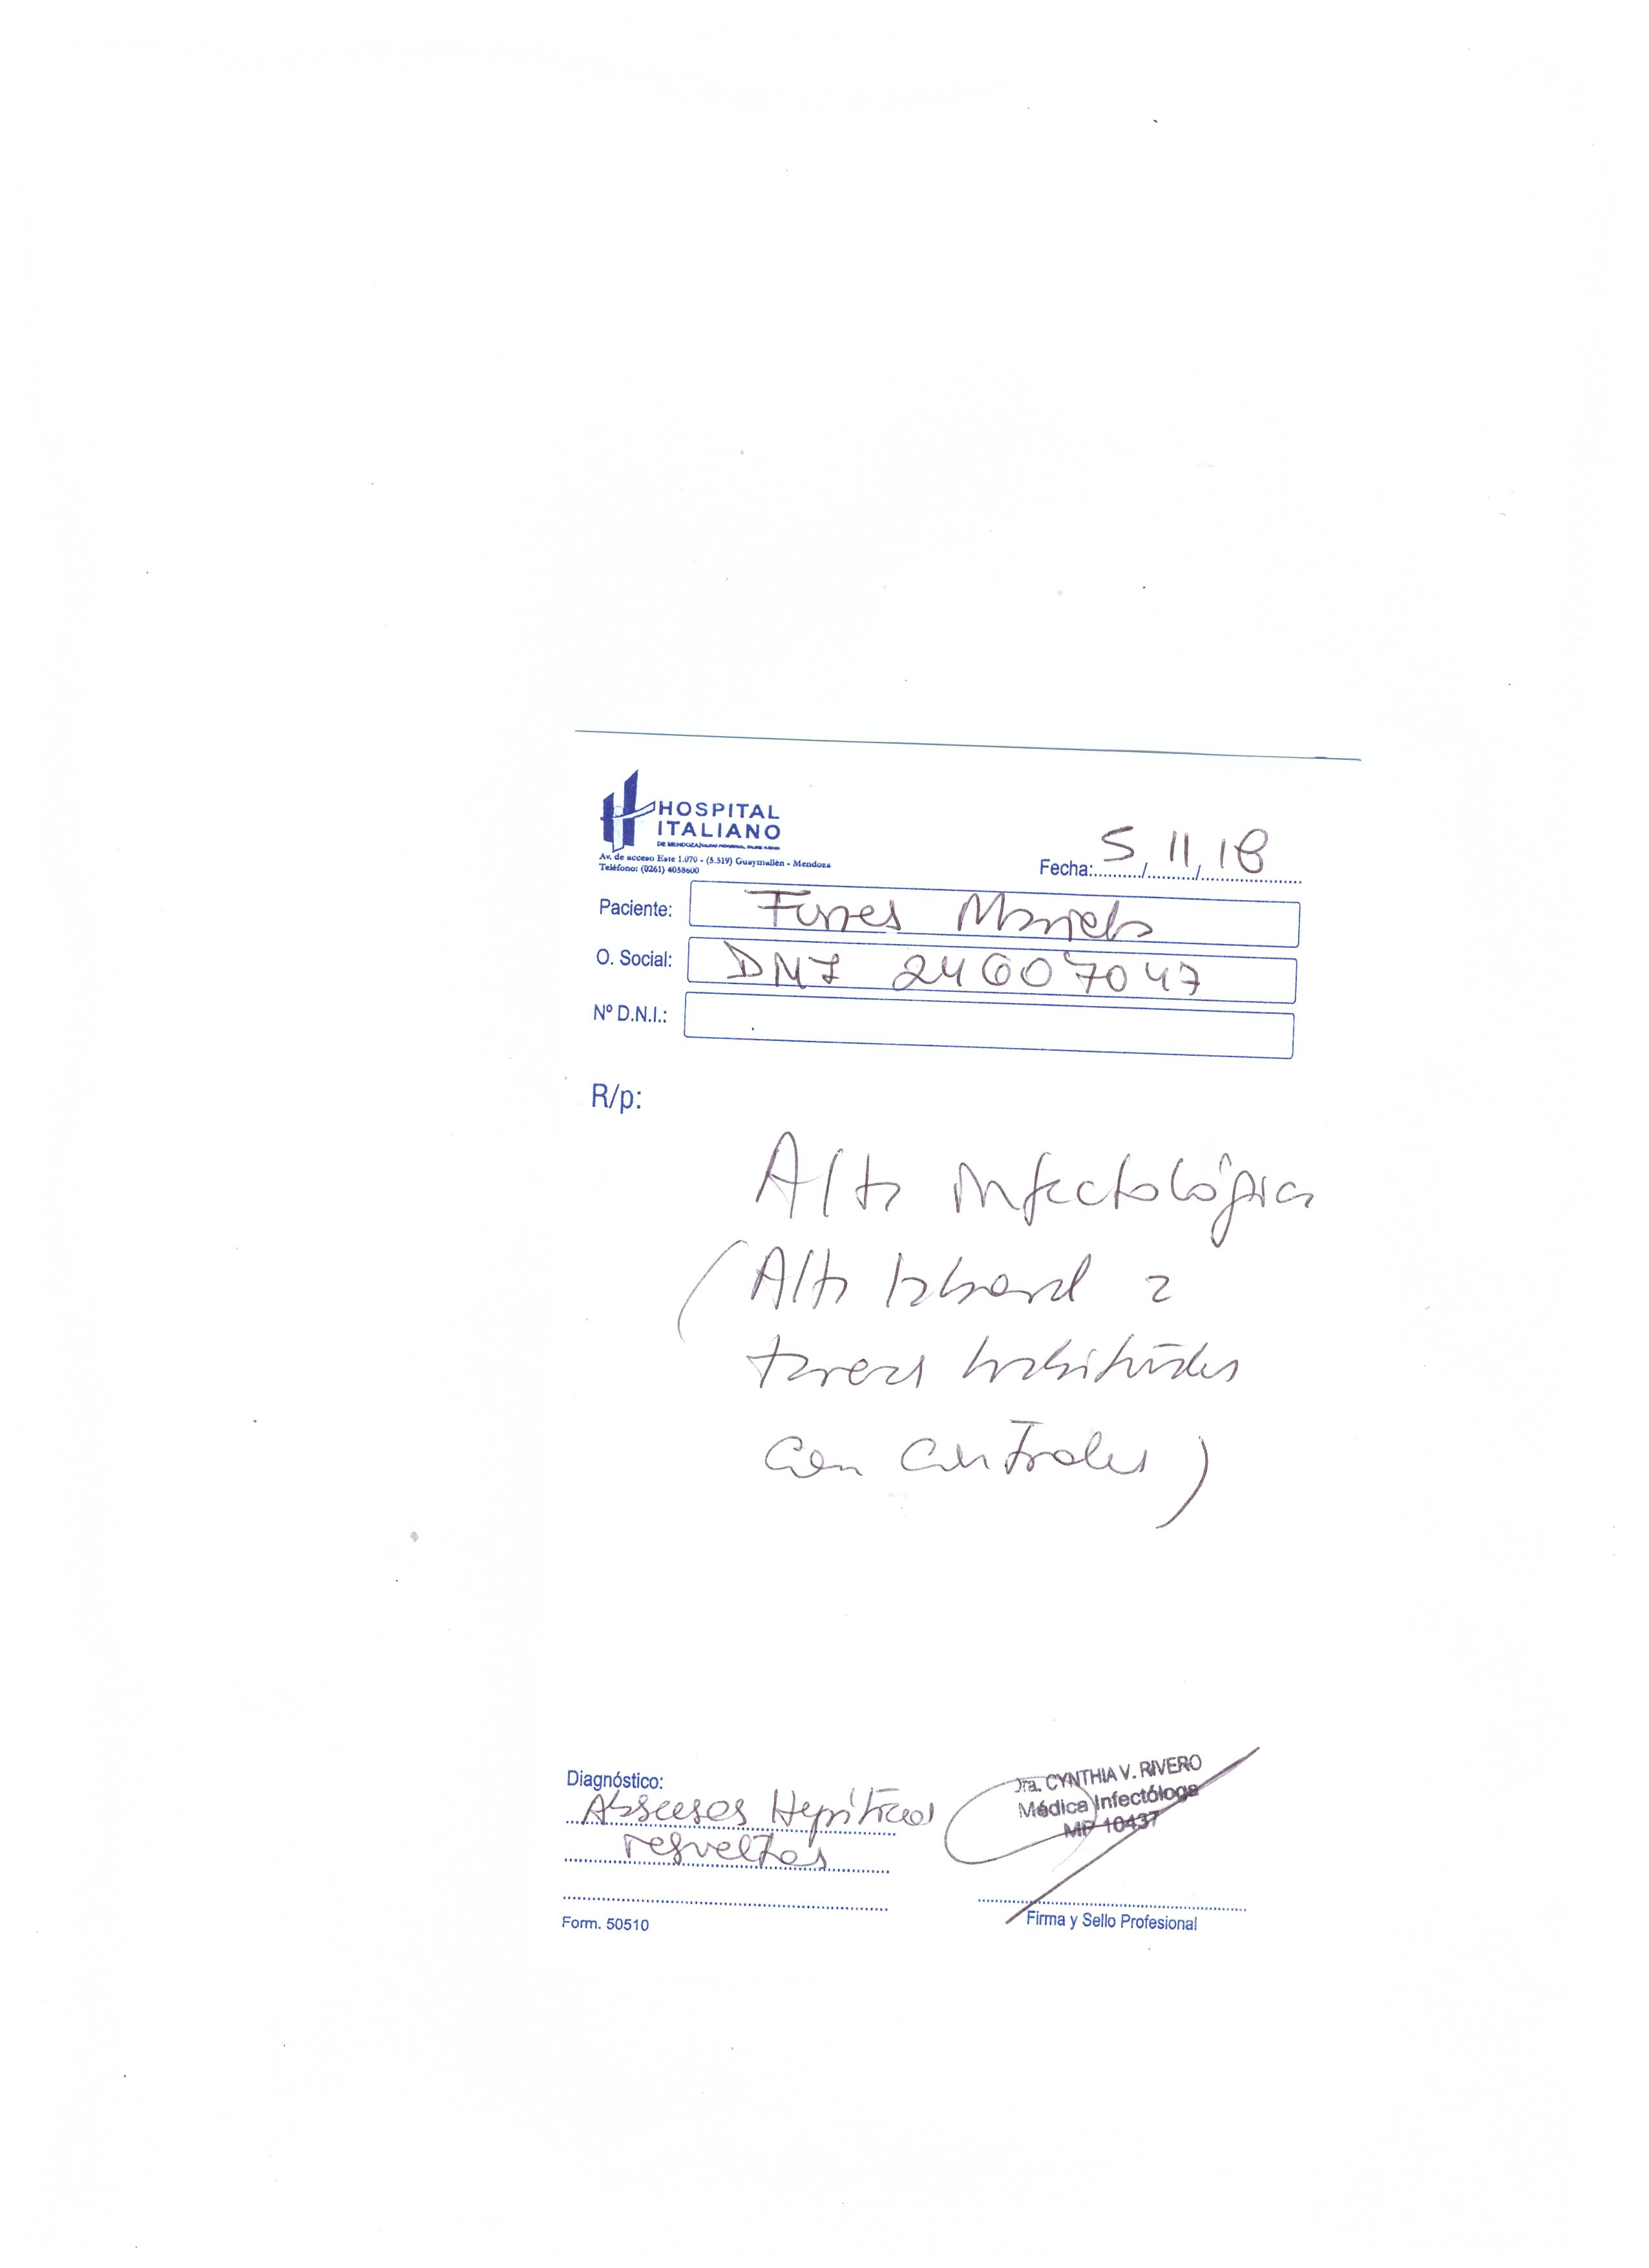 HOSPITAL
ITALIANO
Av. de acceso Este 1.070 - (5.519) Guaymallén - Mendoza
Teléfono: (0261) 4058600
Fecha: 5/11/18
Paciente: Funes Mariela
O. Social: DNI 24607047
Nº D.N.I.:
R/p:
Alta infectológica
(Alta laboral a
tareas habituales
con controles)
Diagnóstico:
Abscesos Hepáticos
resueltos
Dra. CYNTHIA V. RIVERO
Médica Infectóloga
MP 10437
Form. 50510
Firma y Sello Profesional